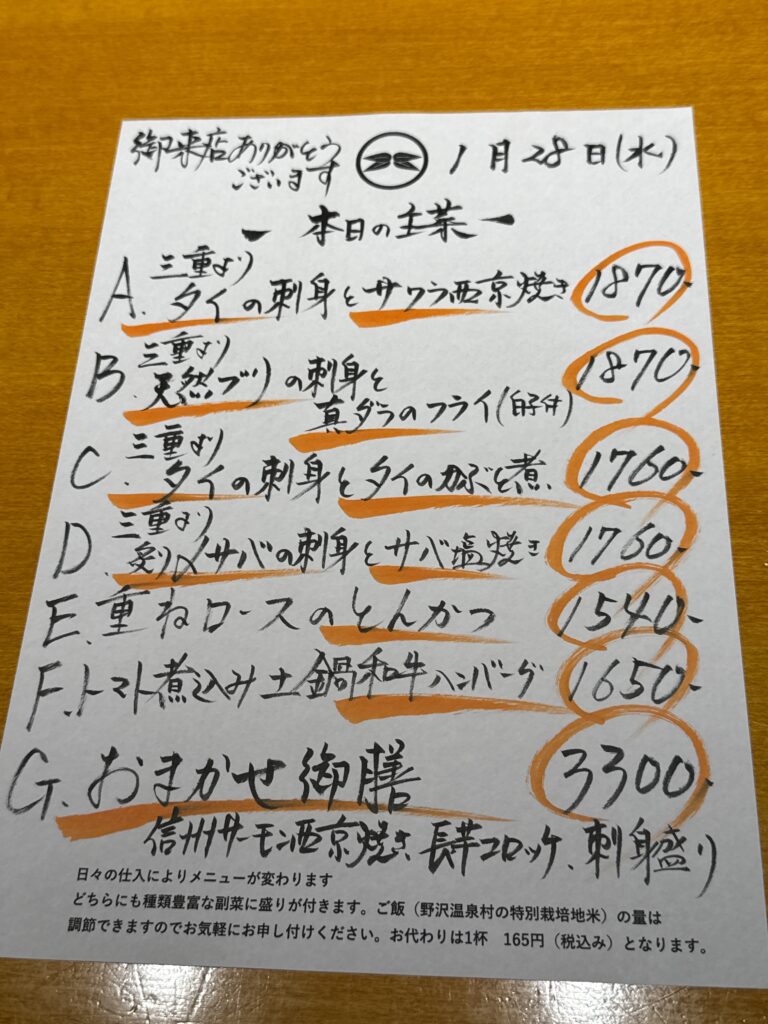 御来店ありがとう
ございます
1月28日(水)
本日の主菜
三重より
A. タイの刺身とサワラ西京焼き 1870-
三重より
B. 天然ブリの刺身と 1870-
真ダラのフライ(白子付)
三重より
C. タイの刺身とタイのかぶと煮. 1760-
三重より
D. 炙り〆サバの刺身とサバ塩焼き 1760-
E. 重ねロースのとんかつ 1540-
F. トマト煮込み土鍋和牛ハンバーグ 1650-
G. おまかせ御膳 3300-
信州サーモン西京焼き、長芋コロッケ、刺身盛り
日々の仕入によりメニューが変わります
どちらにも種類豊富な副菜に盛りが付きます。ご飯（野沢温泉村の特別栽培地米）の量は
調節できますのでお気軽にお申し付けください。お代わりは1杯　165円（税込み）となります。